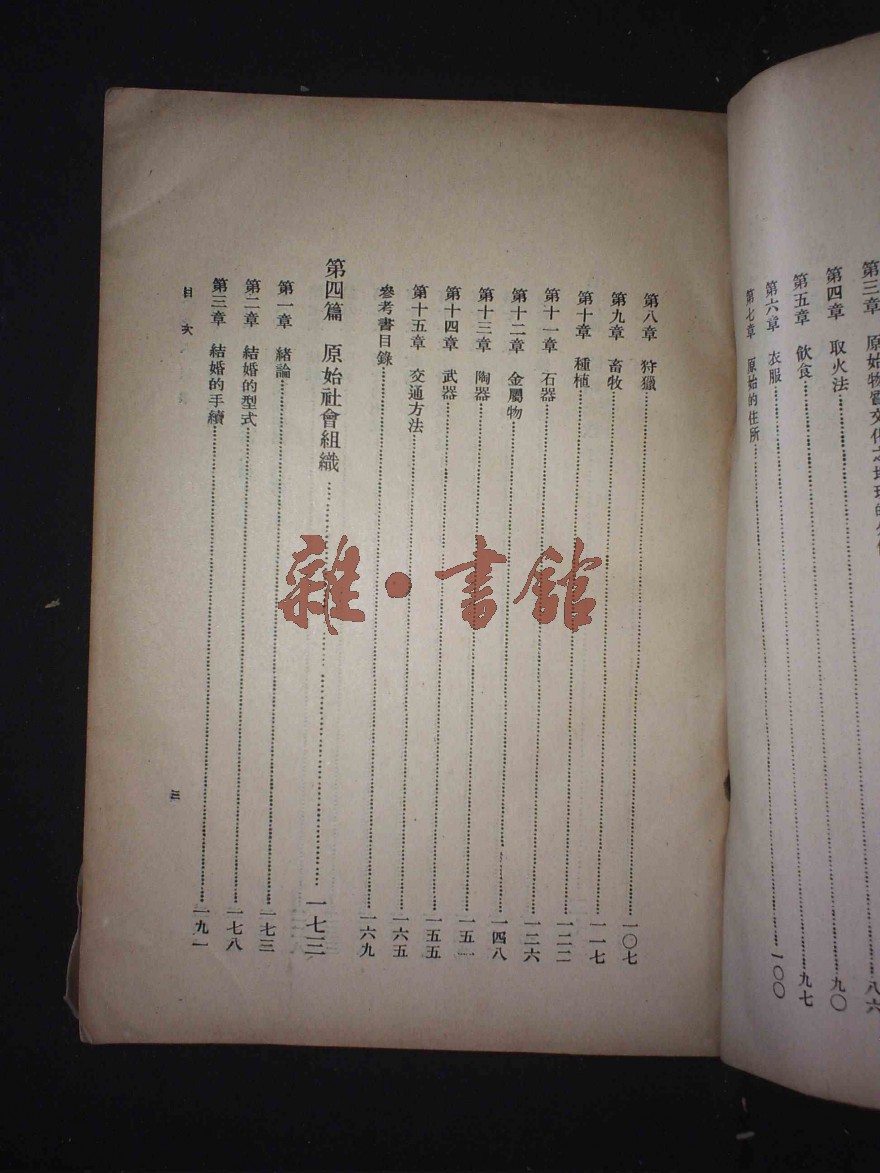 第四章　取火法……九〇
第五章　飲食……九七
第六章　衣服……一〇〇
第七章　原始的住所
第八章　狩獵……一〇七
第九章　畜牧……一一七
第十章　種植……一二二
第十一章　石器……一二六
第十二章　金屬物……一四八
第十三章　陶器……一五一
第十四章　武器……一五五
第十五章　交通方法……一六五
參考書目錄……一六九
第四篇　原始社會組織……一七三
第一章　緒論……一七三
第二章　結婚的型式……一七八
第三章　結婚的手續……一九一
目次
三
雜·書館